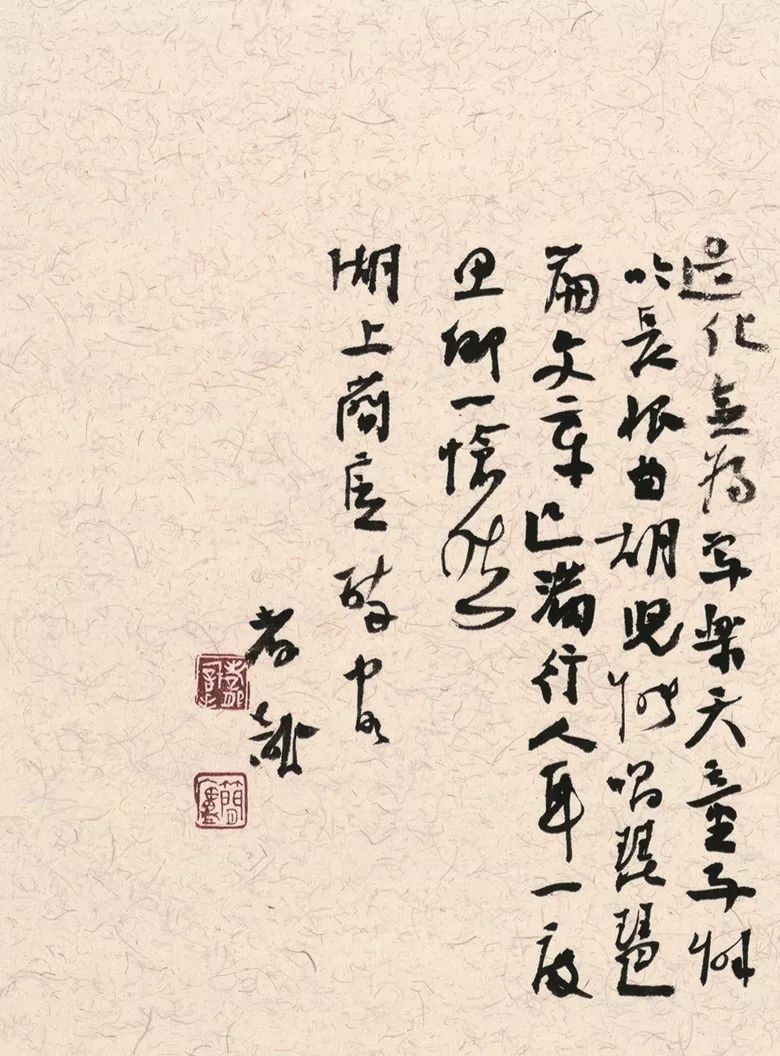 造化無為字樂天童子解
吟長恨曲胡児能唱琵琶
篇文章已滿行人耳一度
思卿一愴然
湖上簡廬
簡廬